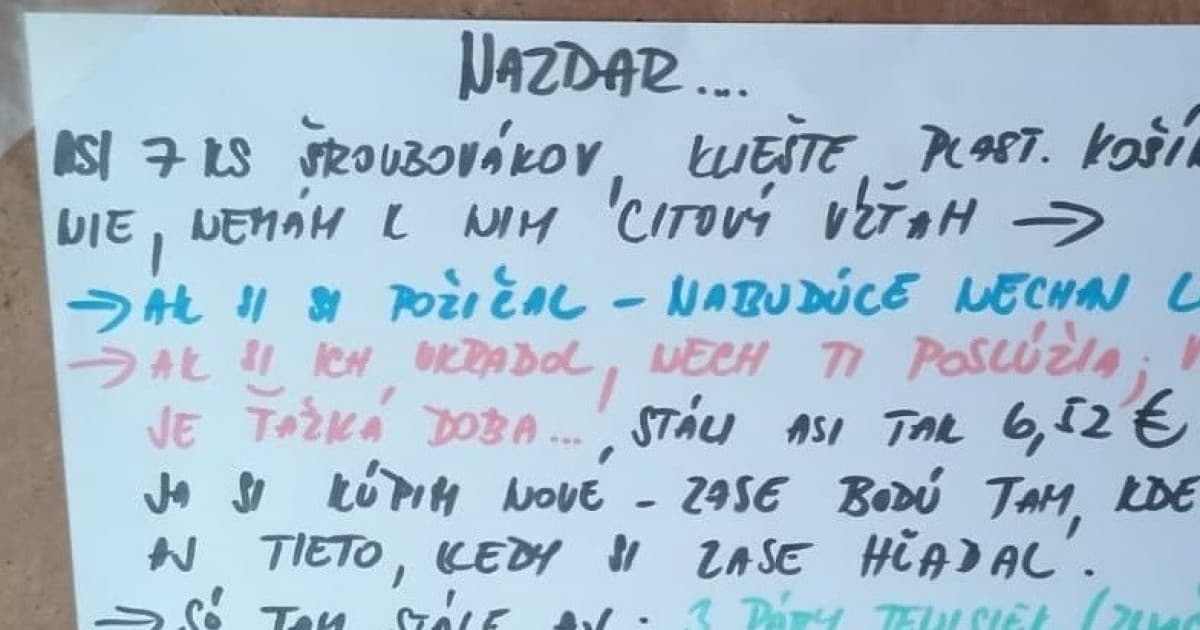 NAZDAR...
ASI 7 KS ŠROUBOVÁKOV, KLIEŠTE, PLAST. KOŠÍK
NIE, NEMÁM K NIM CITOVÝ VZŤAH →
→ AK SI SI POŽIČAL – NABUDÚCE NECHAJ
→ AK SI ICH UKRADOL, NECH TI POSLÚŽIA;
JE ŤAŽKÁ DOBA..., STÁLI ASI TAK 6,52 €
JA SI KÚPIM NOVÉ – ZASE BODÚ TAM, KDE
AJ TIETO, KEDY SI ZASE HĽADAL.
→ SÓ TAM STÁLE AJ: 3 PÁRY